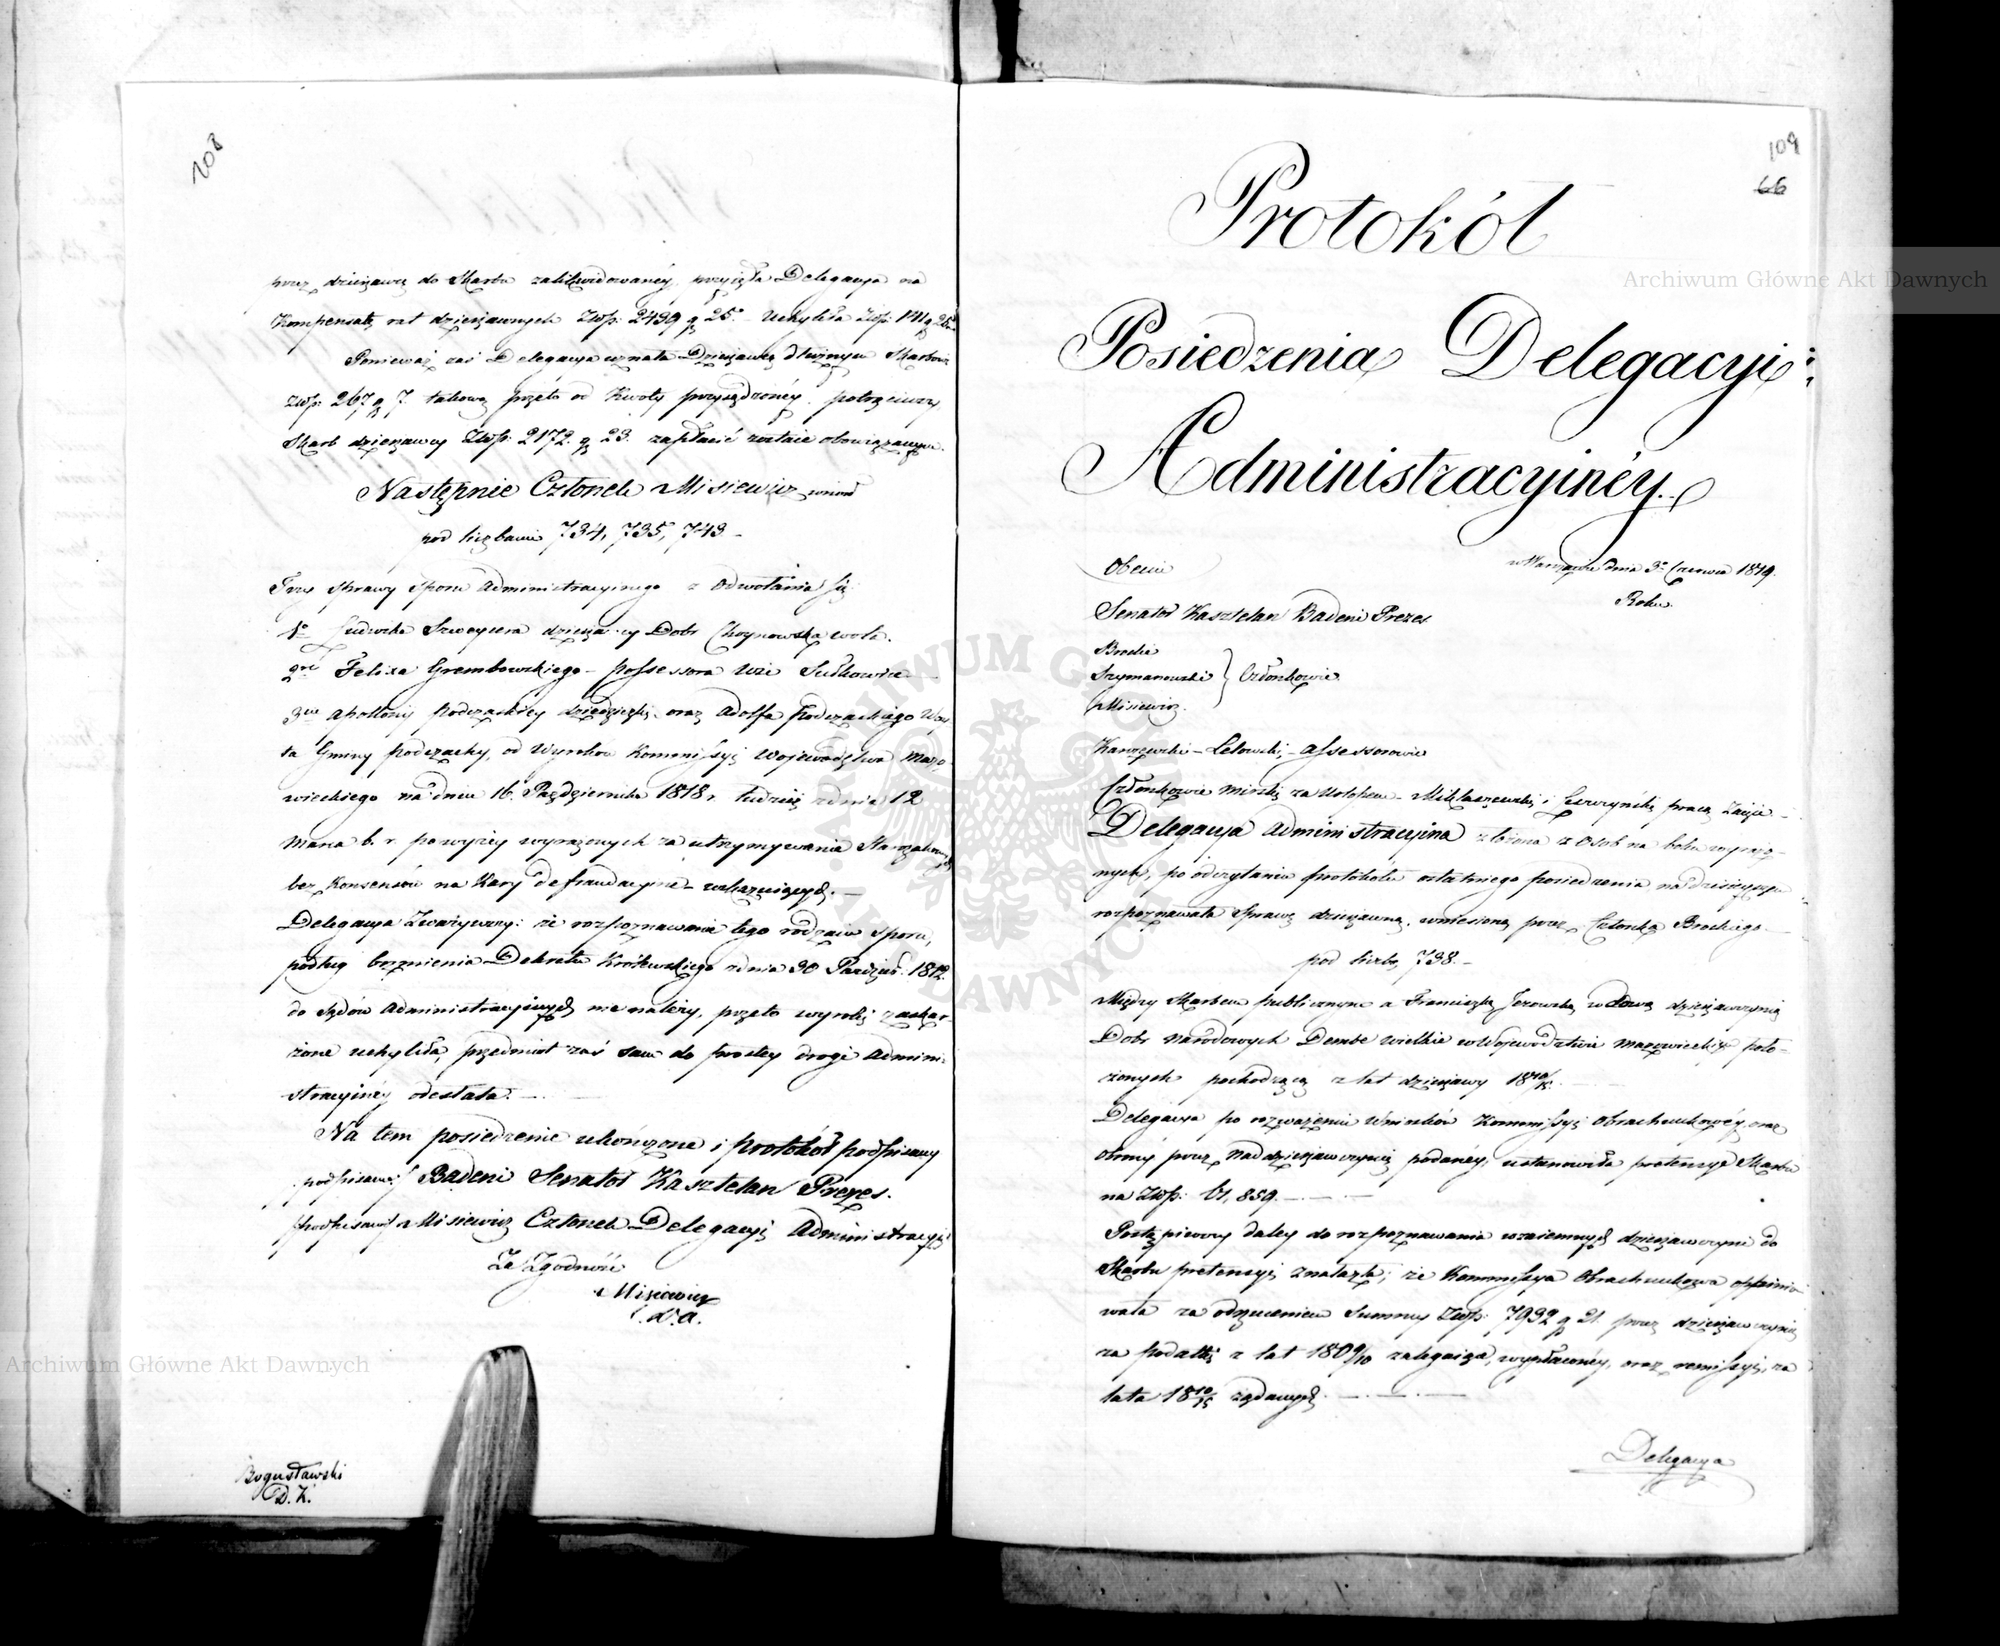 108
przez dzierżawcę do Skarbu zalikwidowanéy, przyięła Delegacya na
Kompensatę rat dzierżawnych Złłp: 2439 g 25. Uchyliła Złłp:
Ponieważ zaś Delegacya uznała Dzierżawcę dłużnym Skarbowi
Złłp: 267 g 7. takową przeto od Kwoty przysądzonéy potrąciwszy,
Skarb dzierżawcy Złłp: 2172. g 23. zapłacić zostaie obowiązanym.
Następnie Członek Misiewicz wniósł
pod liczbami 734, 735, 743.
Trzy sprawy Sporu Administracyinego z odwołania się
1º Ludwika Szweycera dzierżawcy Dobr Choynowska wola.
2re Felixa Grembowskiego possessora wsi Sułkowice
3cie Apollonii Podczaskiey dziedziczki oraz Adolfa Podczaskiego Wóy-
ta Gminy Podczachy, od Wyroków Kommissyi Woiewództwa Mazo-
wieckiego na dniu 16. Października 1818 r. tudzież z dnia 12
Marca b. r. powyżey wyrażonych za utrzymywanie
bez Konsensów na Kary defraudacyine wskazuiących. —
Delegacya Zważywszy: że rozpoznawanie tego rodzaiu Sporu,
podług brzmienia Dekretu Królewskiego z dnia 30 Paźdz: 1812.
do Sądów Administracyinych nie należy, przeto wyroki zaskar-
żone uchyliła, przedmiot zaś sam do prostey drogi Admini-
stracyinéy odesłała. — —
Na tem posiedzenie ukończone i protokół podpisany
podpisano/ Badeni Senator Kasztelan Prezes.
podpisano/ Misiewicz Członek Delegacyi Administracyi:
Za Zgodność
Misiewicz
C. D. A.
Bogusławski
D. K.
109
66
Protokół
Posiedzenia Delegacyi
Administracyinéy.
w Warszawie dnia 3º Czerwca 1819.
Roku
Obecni
Senator Kasztelan Badeni Prezes
Brocki
Szymanowski } Członkowie
Misiewicz.
Karczewski – Letowski, – Assessorowie
Członkowie Miński za Urlopem – Miklaszewski i pracą zaięci –
Delegacya Administracyina złożona z Osób na boku wyrażo-
nych, po odczytaniu protokołu ostatniego posiedzenia na dzisieyszym
rozpoznawała Sprawę dzierżawną, wniesioną przez Członka Brockiego
pod liczbą 738. –
Między Skarbem publicznym a Franciszką Jezowską wdową dzierżawczynią
Dobr narodowych Dembe wielkie w Woiewództwie Mazowieckim poło-
żonych pochodzącą z lat dzierżawy 18 10/15.
Delegacya po rozważeniu Wniosków Kommissyi Obrachunkowéy, oraz
obrony przez Naddzierżawczynię podanéy, ustanowiła pretensye Skarbu
na Złłp: 61,859. — — —
Postąpiwszy daley do rozpoznawania wzaiemnych dzierżawczyni do
Skarbu pretensyi, znalazła, że Kommissya Obrachunkowa oppinio-
wała za odrzuceniem Summy Złłp: 7932 g 21. przez dzierżawczynię
za podatki z lat 1809/10 zalegaiące, wypłaconéy, oraz remissyi, za
lata 18 10/15 żądanych. — — —
Delegacya
Archiwum Główne Akt Dawnych
Archiwum Główne Akt Dawnych
ARCHIWUM GŁÓWNE AKT DAWNYCH